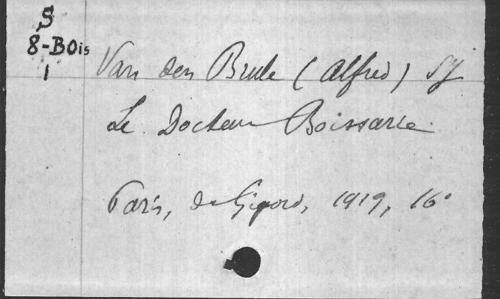 S
8-BOis
1
Van den Brule (Alfred) SJ
Le Docteur Boissarie
Paris, de Gigord, 1919, 16°